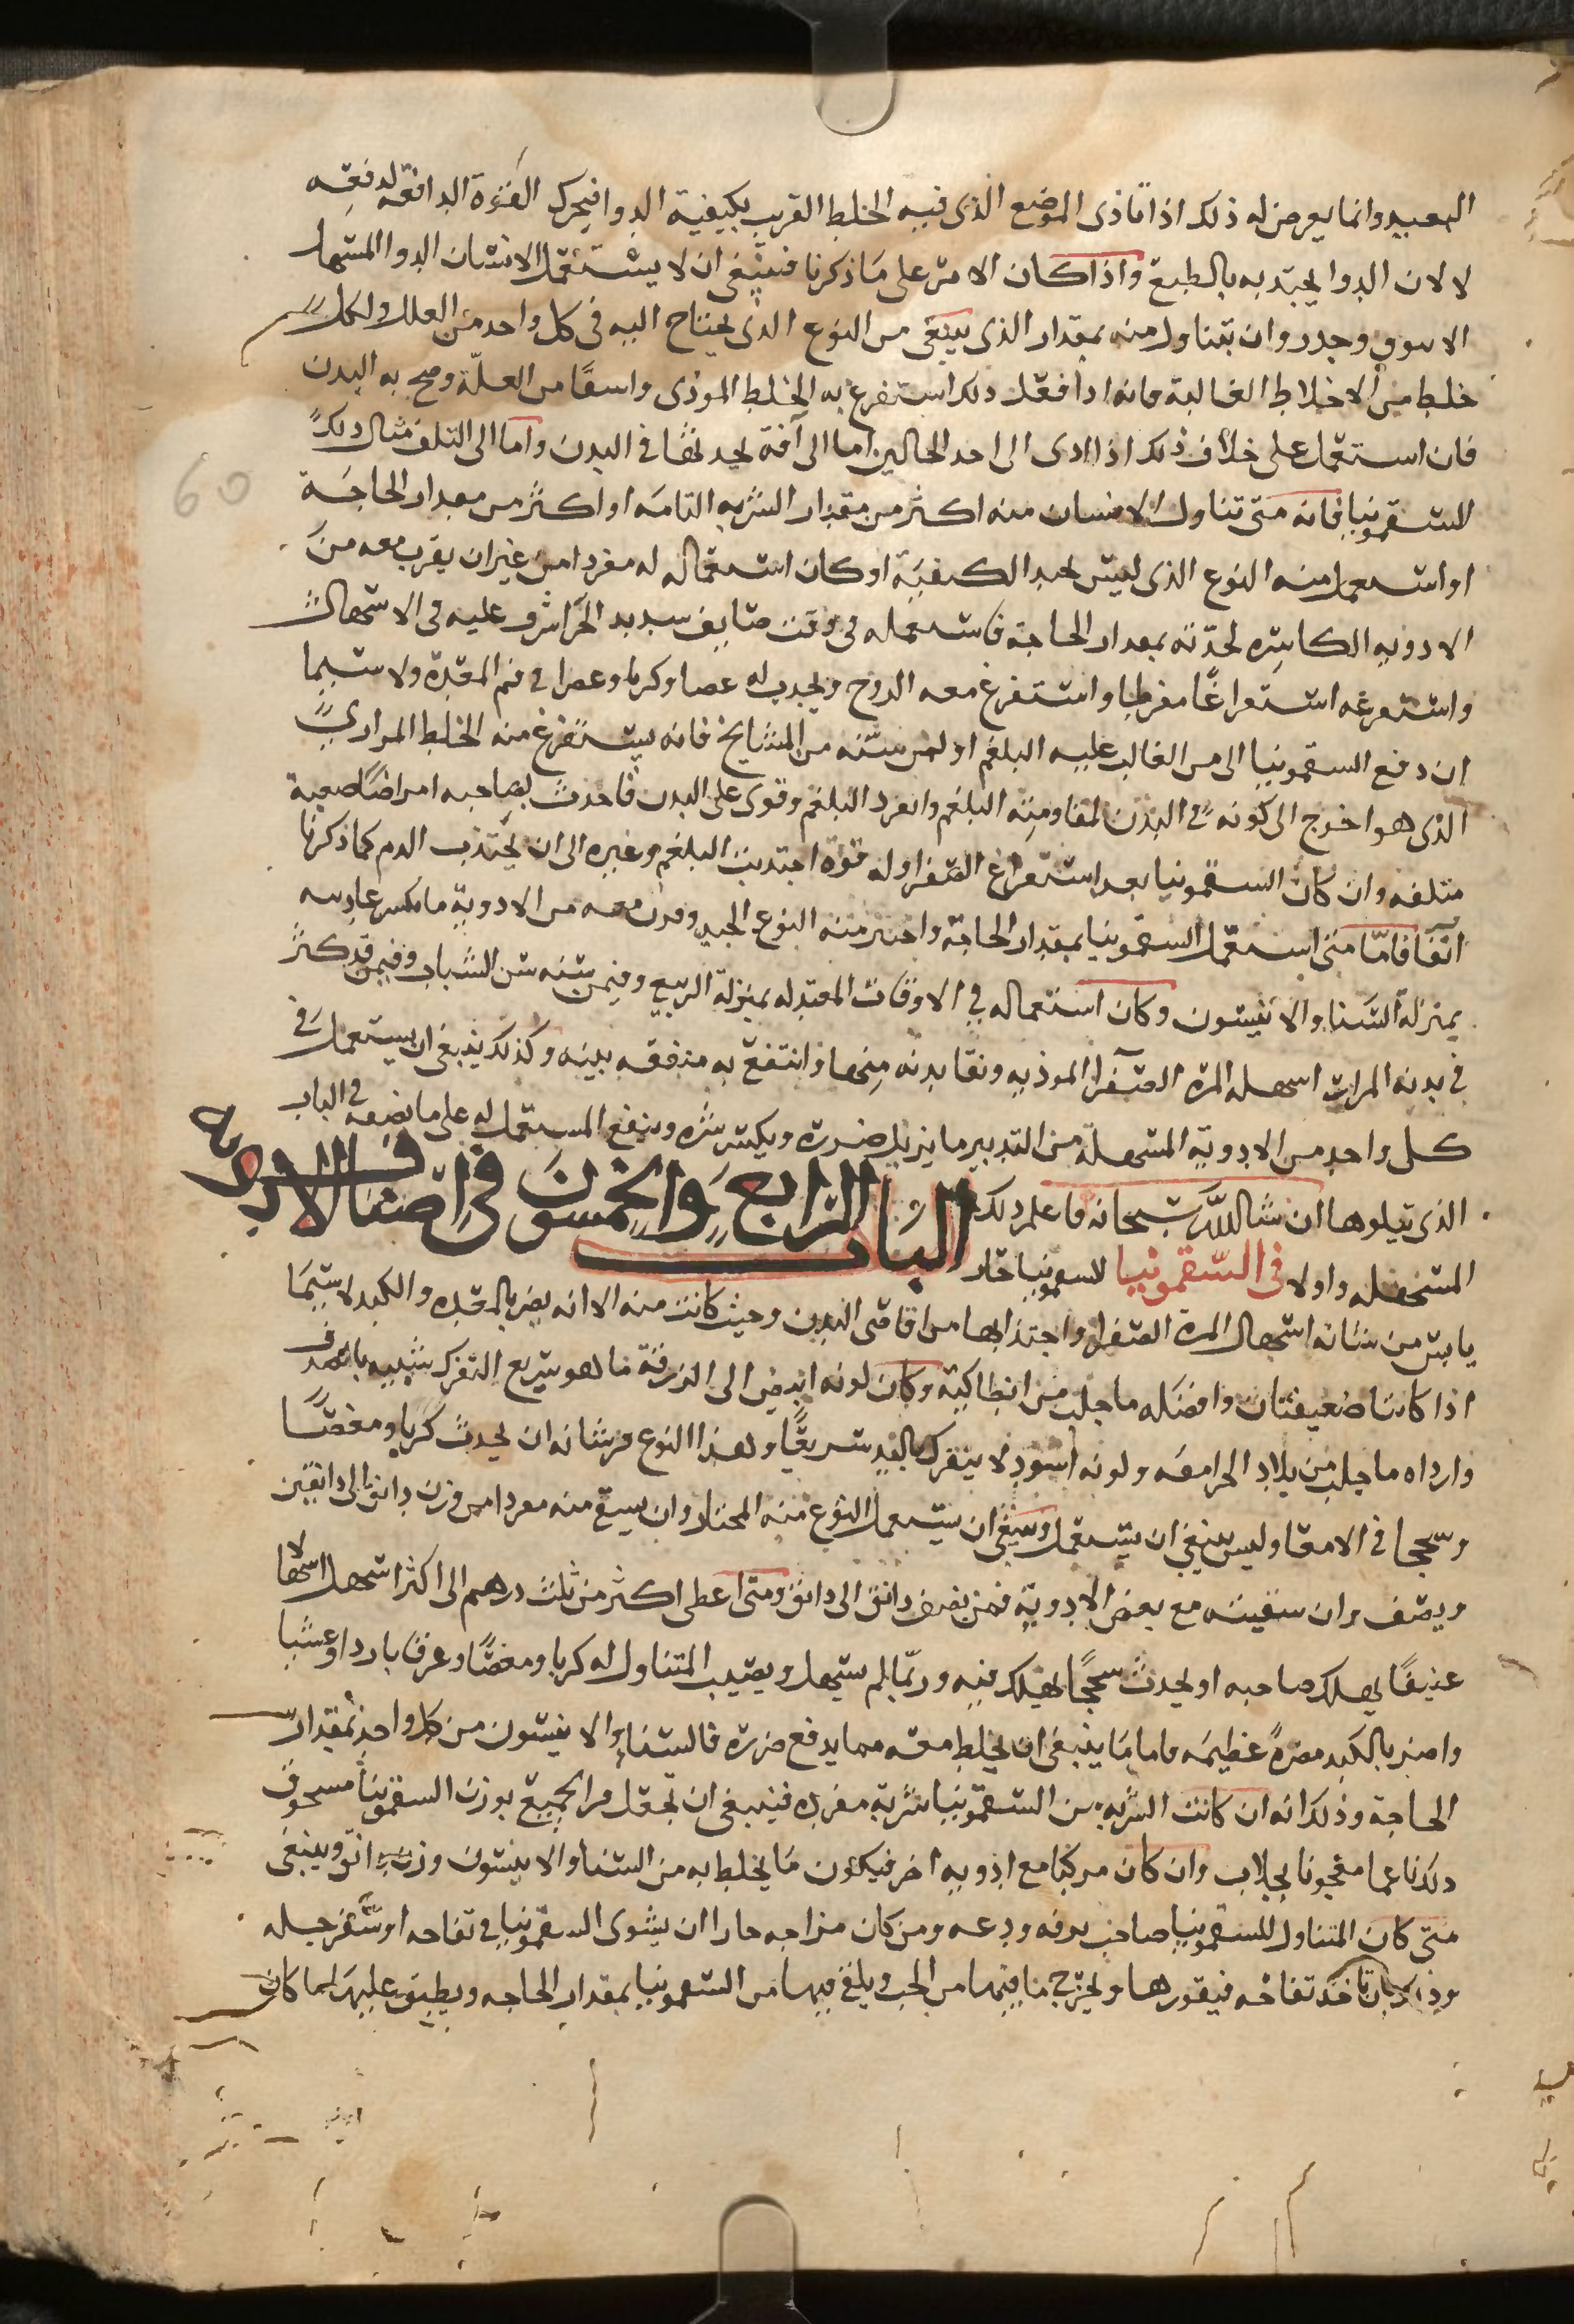 البعيد وانما يعرض له ذلك اذا تاذى الموضع الذى فيه الخلط القريب بكيفية الدوا فيحرك القوة الدافعه لدفعه
لا لان الدوا يجتذبه بالطبع واذا كان الامر على ما ذكرنا فينبغى ان لا يستعمل الانسان الدوا المسهل
الا بتوق وحذر وان يتناول منه بمقدار الذى ينبغى من النوع الذى يحتاج اليه فى كل واحد من العلل ولكل
خلط من الاخلاط الغالبة فانه اذا فعل ذلك استفرغ به الخلط الموذى واستفا من العلة وصح به البدن
فان استعمل على خلاف ذلك اذا ادى الى احد الحالين اما الى آفة يحدثها فى البدن واما الى التلف مثال ذلك
السقمونيا فانه متى تناول الانسان منه اكثر من مقدار الشربه التامه او اكثر من مقدار الحاجة
او استعمل منه النوع الذى ليس بجيد الكيفية او كان استعماله له مفردا من غير ان يقرب معه من
الادويه الكاسره لحدته بمقدار الحاجة فاستعمله فى وقت صايف شديد الحر اشرف عليه فى الاسهال
واستفرغه استفراغا مفرطا واستفرغ معه الروح ويجدث له غصا وكربا وعصرا فى فم المعدة ولا سيما
ان دفع السقمونيا الى من الغالب عليه البلغم او لمن سنه من المشايخ فانه يستفرغ منه الخلط المرارى
الذى هو احوج الى كونه فى البدن لمقاومته البلغم وانفرد البلغم وقوى على البدن فاحدث بصاحبه امراضا صعبة
متلفه وان كان السقمونيا بعد استفراغ الصفرا وله قوة اجتذبت البلغم وغيره الى ان يجتذب الدم كما ذكرنا
آنفا فاما متى استعمل السقمونيا بمقدار الحاجة واختير منه النوع الجيد وقرن معه من الادوية ما يكسر عاديته
بمنزلة السنا والانيسون وكان استعماله فى الاوقات المعتدله بمنزلة الربيع وفيمن سنه سن الشباب وفيمن قد كثر
فى بدنه المرار اسهله المره الصفرا الموذيه ونقا بدنه منها وانتفع به منفعه بينه وكذلك ينبغى ان يستعمل فى
كل واحد من الادوية المسهلة من التدبير ما يزيل ضرره ويكسر شره وينفع المستعمل له على ما نضعه فى الباب
الذى يتلوها ان شا الله سبحانه فاعلم ذلك الباب الرابع والخمسون فى اصناف الادوية
المسهله واولا فى السقمونيا السقمونيا حار
يابس من شانه اسهال المرة الصفرا واجتذابها من اقاصى البدن وحيث كانت منه الا انه يضر بالمعده والكبد لا سيما
اذا كانتا ضعيفتان وافضله ما جلب من انطاكية وكان لونه ابيض الى الزرقة ما هو سريع التفرك شبيه بالصدف
وارداه ما جلب من بلاد الجرامقه ولونه اسود لا يتفرك باليد سريعا وهذا النوع من شانه ان يحدث كربا ومغصا
وسحجا فى الامعا وليس ينبغى ان يستعمل وينبغى ان يستعمل النوع منه المختار وان يسقى منه مفردا من وزن دانق الى دانقين
ونصف وان سقيته مع بعض الادوية فمن نصف دانق الى دانق ومتى اعطى اكثر من ثلث درهم الى اكثر اسهل اسهالا
عنيفا يهلك صاحبه او يحدث سحجا يهلك فيه وربما لم يسهل ويصيب المتناول له كربا ومغصا وعرقا باردا وغشيا
واضر بالكبد مضرة عظيمه فاما ما ينبغى ان يخلط معه مما يدفع ضرره فالسنا والانيسون من كل واحد بمقدار
الحاجة وذلك انه ان كانت الشربه من السقمونيا شربة مفرده فينبغى ان تجعل من الجميع بوزن السقمونيا مسحوق
ذلك ناعما معجونا بجلاب وان كان مركبا مع ادويه اخر فيكون ما يخلط به من السنا والانيسون وزن دانق وينبغى
متى كان المتناول للسقمونيا صاحب ترفه ودعه ومن كان مزاجه حارا ان يشوى السقمونيا فى تفاحه او سفرجله
وذلك بان تاخذ تفاحه فيقورها ويخرج ما فيها من الحب ويلقى فيها من السقمونيا بمقدار الحاجه ويطبق عليها ما كان
60